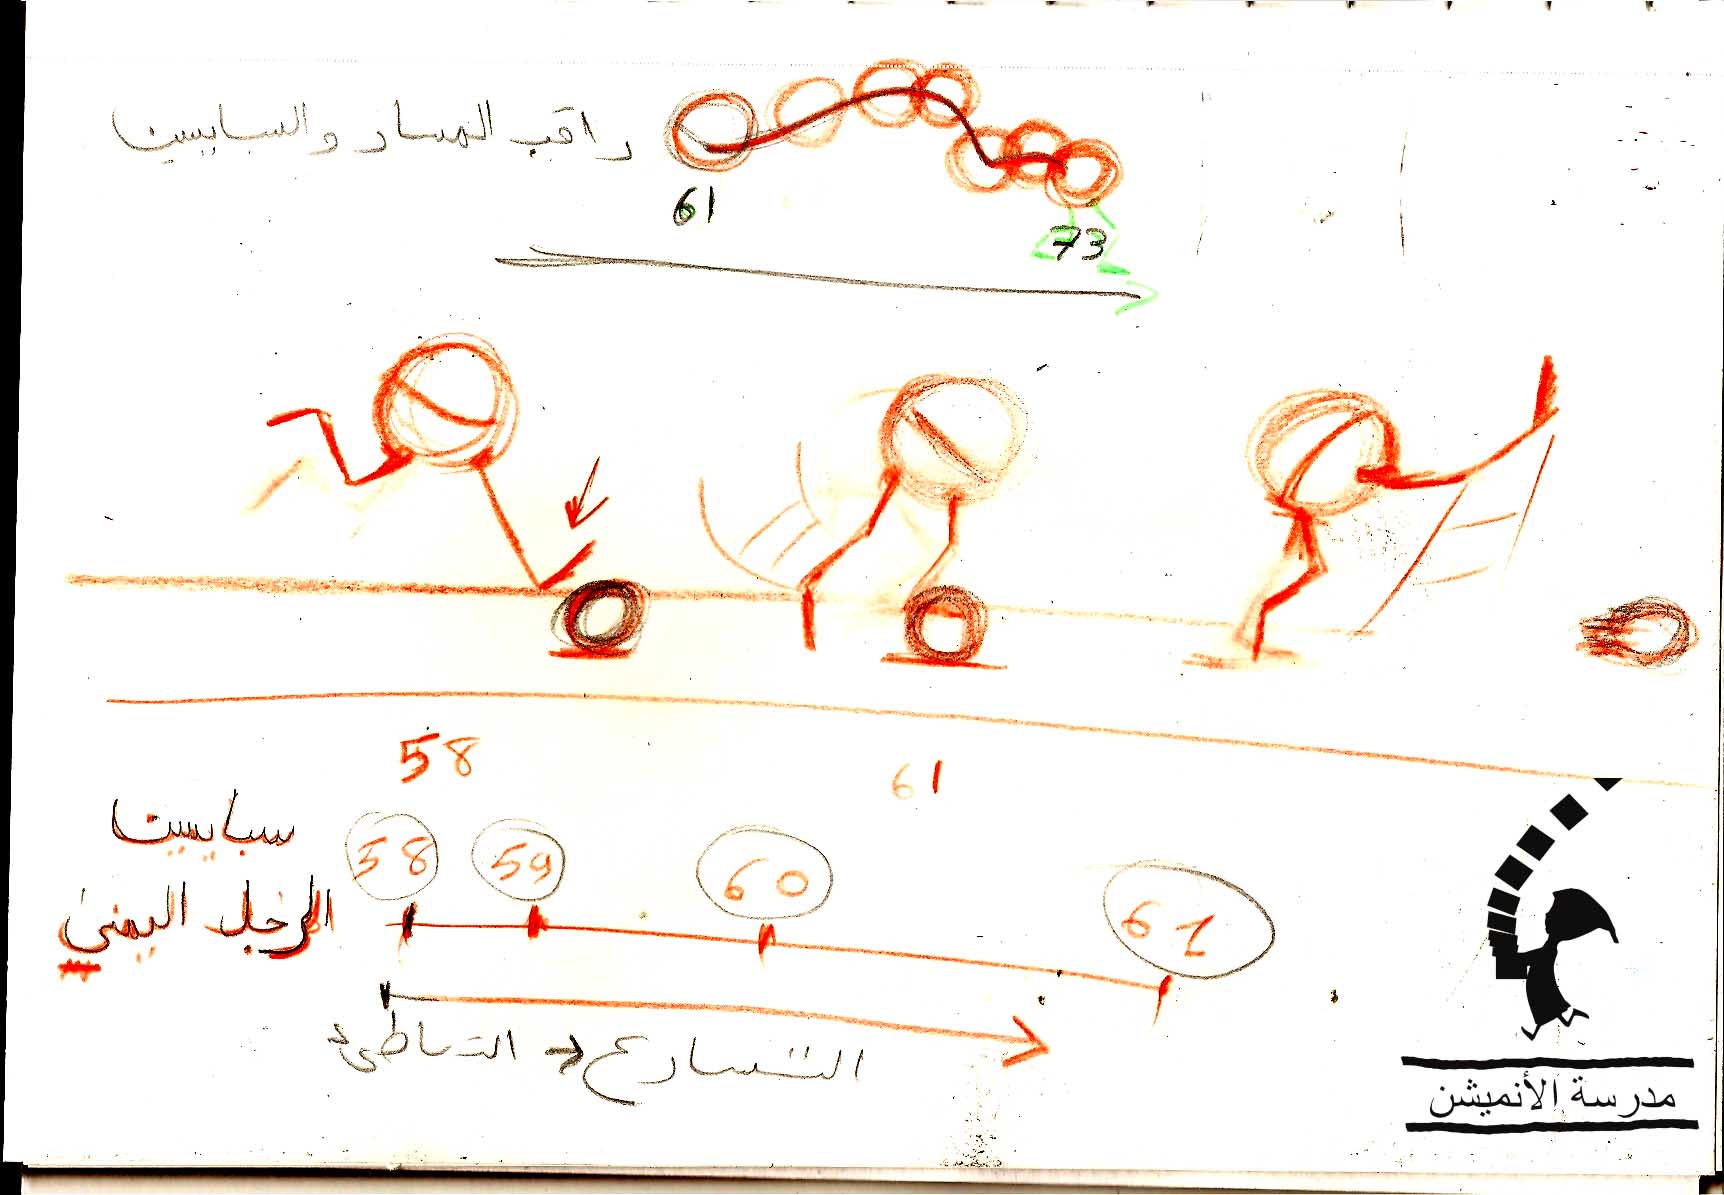 راقب المسار والسبايسينت
61
73
58
61
سبايسينت
الرجل اليمنى
58 59 60 61
التباطئ → التسارع
مدرسة الأنميشن